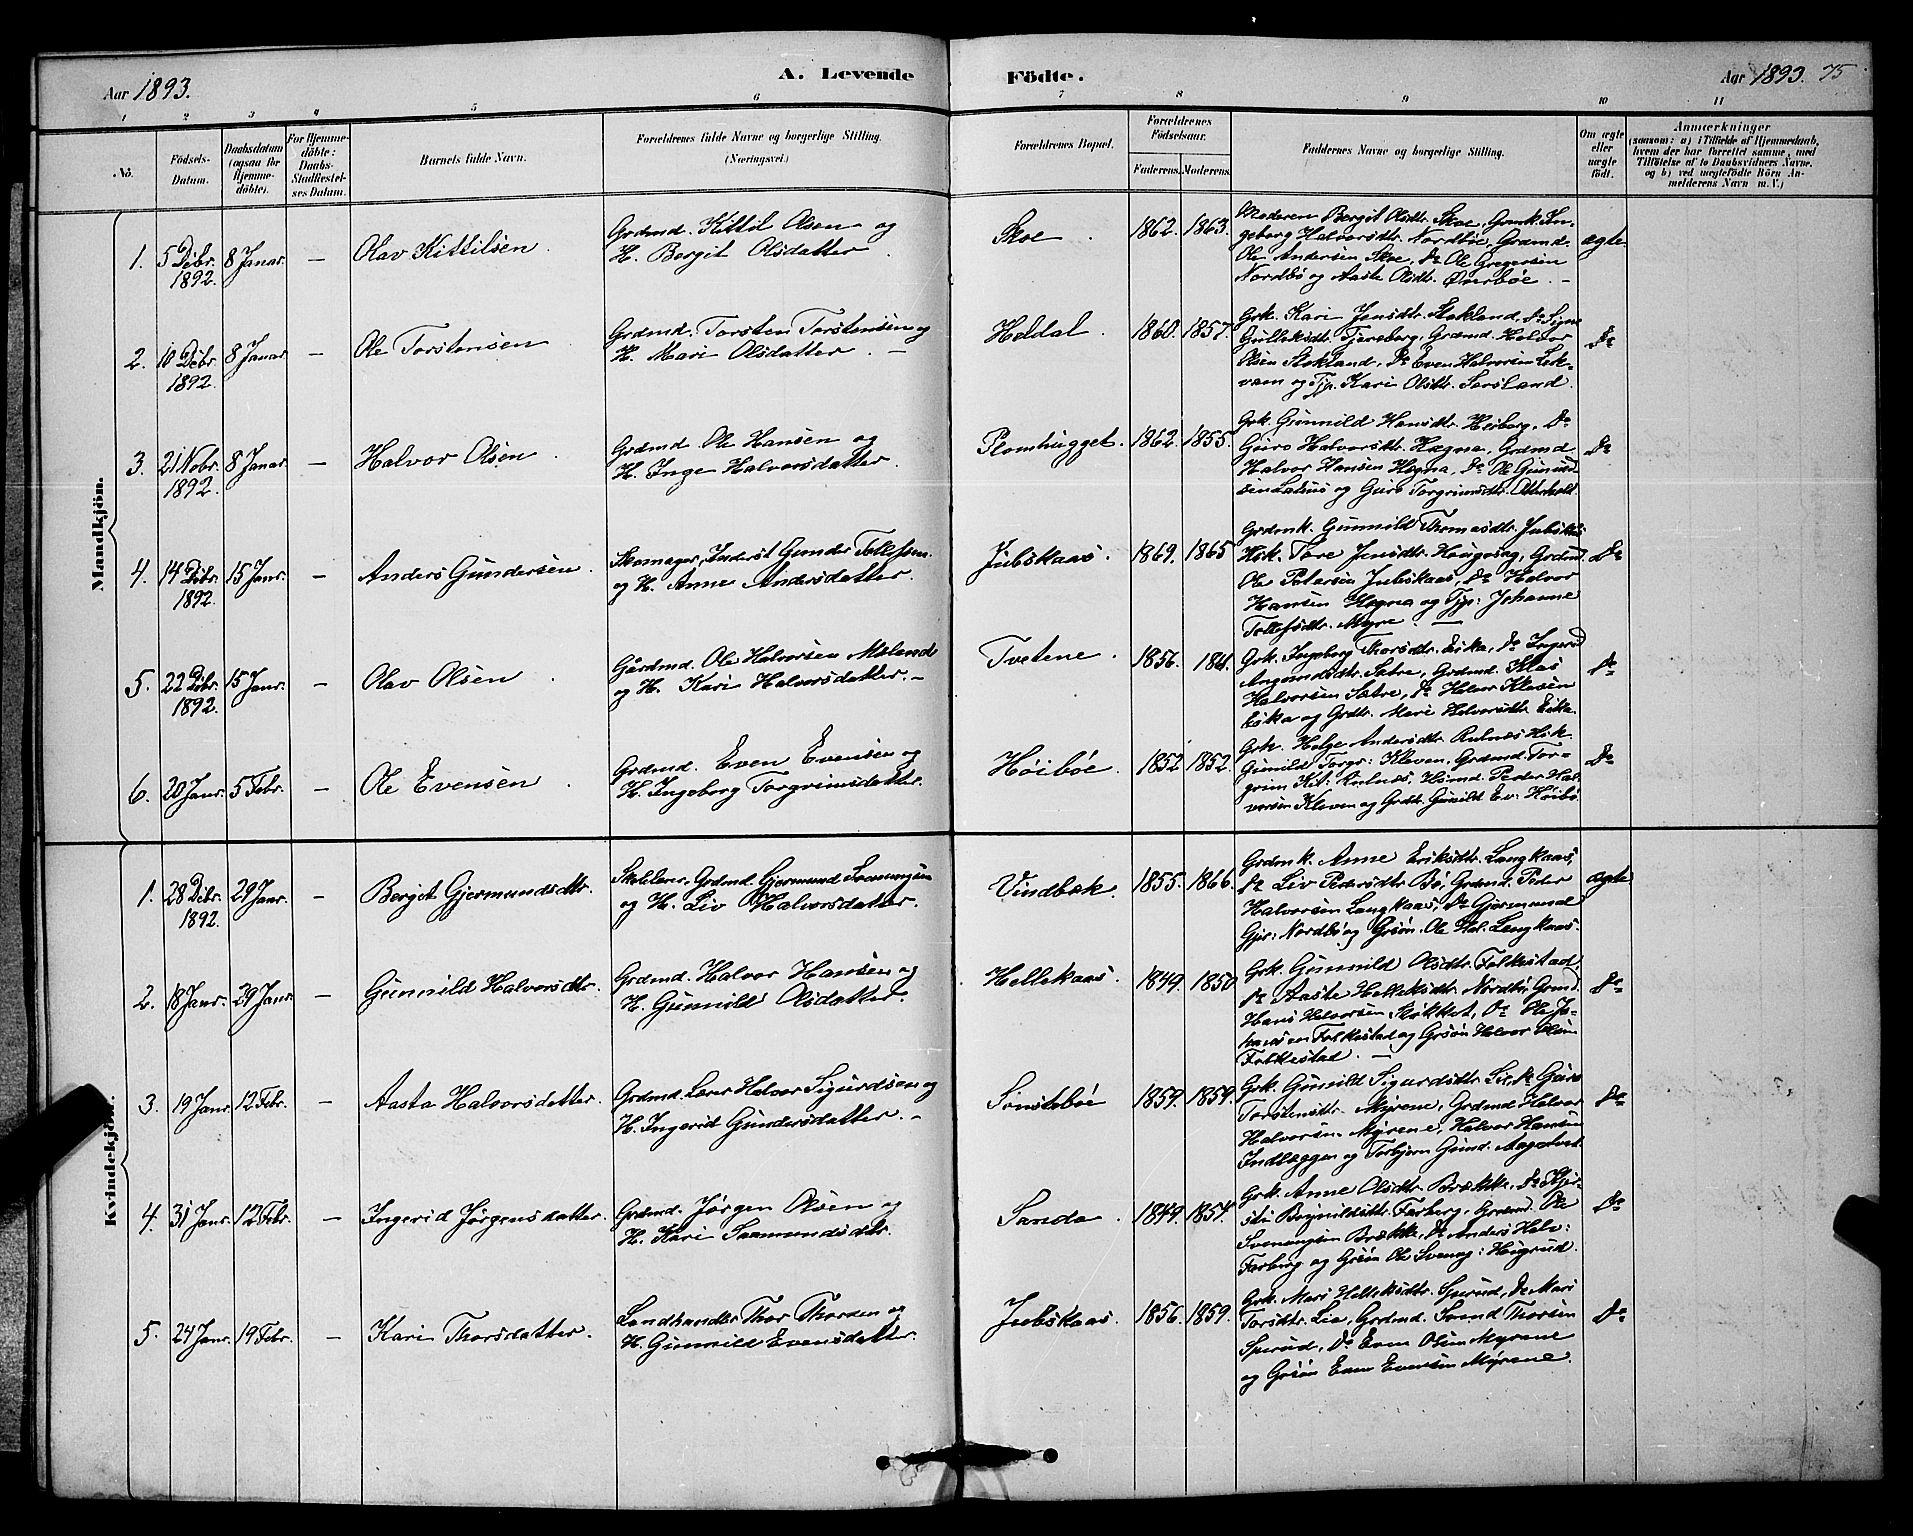 Aar 1893.
A. Levende Födte.
Aar 1893. 75
1 2 3 4 5 6 7 8 9 10 11
No.
Födsels-Datum.
Daabsdatum (ogsaa for Hjemme-döbte).
For Hjemme-döbte: Daabs-Stadfæstel-ses Datum.
Barnets fulde Navn.
Forældrenes fulde Navne og borgerlige Stilling. (Næringsvei.)
Forældrenes Bopæl.
Forældrenes Födselsaar.
Faderens. Moderens.
Faddernes Navne og borgerlige Stilling.
Om ægte eller uægte födt.
Anmærkninger
(saasom: a) i Tilfælde af Hjemmedaab, hvem der har forrettet samme, med Tilföielse af to Daabsvidners Navne. og b) ved uægtefödte Börn An-melderens Navn m. V.)
Mandkjön.
1. 5 Debr. 1892. 8 Janar. — Olav Kittilsen.
Grdmd. Kittil Olsen og
H. Bergit Olsdatter.
Skoe. 1862. 1863.
Moderen Bergit Olsdtr. Skoe, Gmk. In-
geborg Halvorsdtr. Nordbøe, Grdmd.
Ole Andersen Skoe, Do Ole Gregersen
Nordbö og Aaste Olsdtr. Øverbøe. —
ægte
2. 10 Debr. 1892. 8 Janar — Ole Torstensen
Grdmd. Torsten Torstensen og
H. Mari Olsdatter. —
Heldal. 1860. 1857.
Grk. Kari Jensdtr. Stokland, Do Signe
Gulleksdtr. Tjøneborg, Grdmd. Halvor
Olsen Stokland, Do Even Halvorsen Lek-
vam og Tjp. Kari Olsdtr. Sorsland.
Do
3. 21 Nobr. 1892. 8 Janar. — Halvor Olsen.
Grdmd. Ole Hansen og
H. Inge Halvorsdatter.
Plomhugget. 1862. 1855.
Grk. Gunnild Hansdtr. Heiborg, Do
Guro Halvorsdtr. Hægna, Grdmd.
Halvor Hansen Hegna, Do Ole
og Guro Torgrimsdtr.
Do
4. 14 Debr. 1892. 15 Janr. — Anders Gundersen.
Skomager, Inderst Gunder Tollefsen
og H. Anne Andersdatter.
Jubskaas. 1869. 1865
Grdmk. Gunnild Thomasdtr. Jubskaas
Hsk. Tore Jensdtr. Haugosag, Grdmd.
Ole Petersen Jubskaas, Do Halvor
Hansen Hegna og Tjp: Johanne
Tollefsdtr. Myre. —
Do
5. 22 Debr. 1892. 15 Janr. — Olav Olsen.
Gårdmd. Ole Halvorsen Moland
og H. Kari Halvorsdatter. —
Tvetene. 1856.
Grk. Ingeborg Thorsdtr. Eika, Do Ingerid
Sætre, Grdmd. Klas
Halvorsen Sætre, Do Halvor Klasen
Eika og Grdtr. Mari Halvorsdtr. Eika.
Do
6. 20 Janr. 5 Febr. — Ole Evensen.
Grdmd. Even Evensen og
H. Ingeborg Torgrimsdatter.
Høibøe. 1852 1852.
Grk. Helge Andersdtr. Hsk.
Gunild Torgr: Kleven, Grdmd. Tor-
grim Kit: Hsmd. Peder Hal-
vorsen Kleven og Grdtr. Gunild Ev: Høibö
Do
Kvindekjön.
1. 28 Debr. 1892. 29 Janr. — Bergit Gjermundsdtr.
Skolelærer, Grdmd. Gjermund Svenungsen
og H. Liv Halvorsdatter.
Vindbæk. 1855. 1866.
Grdmk. Anne Eriksdtr. Langkaas,
Do Liv Pedersdtr. Bö, Grdmd. Peder
Halvorsen Langkaas, Do Gjermund
Gjer: Nordbö og Grsøn. Ole Hal. Langkaas.
ægte
2. 18 Janr. 29 Janr. — Gunnild Halvorsdtr.
Grdmd. Halvor Hansen og
H. Gunnild Olsdatter.
Hellekaas. 1849. 1850
Grk. Gunnild Olsdtr. Folkestad,
Do Aaste Helleksdtr. Nordbö, Grmd.
Hans Halvorsen Do Ole Jo-
hansen Folkestad og Grsøn Halvor Olsen
Folkestad. —
Do
3. 19 Janr. 12 Febr. — Aasta Halvorsdatter.
Grdmd. Lærer Halvor Sigurdsen og
H. Ingerid Gundersdatter. —
Sönstebøe 1859. 1859.
Grk. Gunild Sigurdsdtr. Lie, Do Guro
Torstensdtr. Myrene, Grdmd Halvor
Halvorsen Myrene, Halvor Hansen
Indlæggen og Torbjørn Gund.
Do
4. 31 Janr. 12 Febr. — Ingerid Jørgensdatter.
Grdmd. Jørgen Olsen og
H. Kari Saamundsdtr.
Sanda. 1849. 1857.
Grk. Anne Olsdtr. Brække, Do Kjer-
sti Bøynildsdtr. Farberg, Grdmd. Ole
Svenungsen Brække, Do Anders Halv:
Farberg og Grsön Ole Svenug: Haugrud.
Do
5. 24 Janr. 19 Febr. — Kari Thorsdatter.
Landhandler Thor Thorsen og
H. Gunnild Evensdatter.
Jubskaas. 1856. 1859.
Grk. Mari Helleksdtr. Sperud, Do Mari
Torsdtr. Lie, Grdmd. Svend Thorsen
Sperud, Do Even Olsen Myrene
og Grsön Even Evensen Myrene.
Do